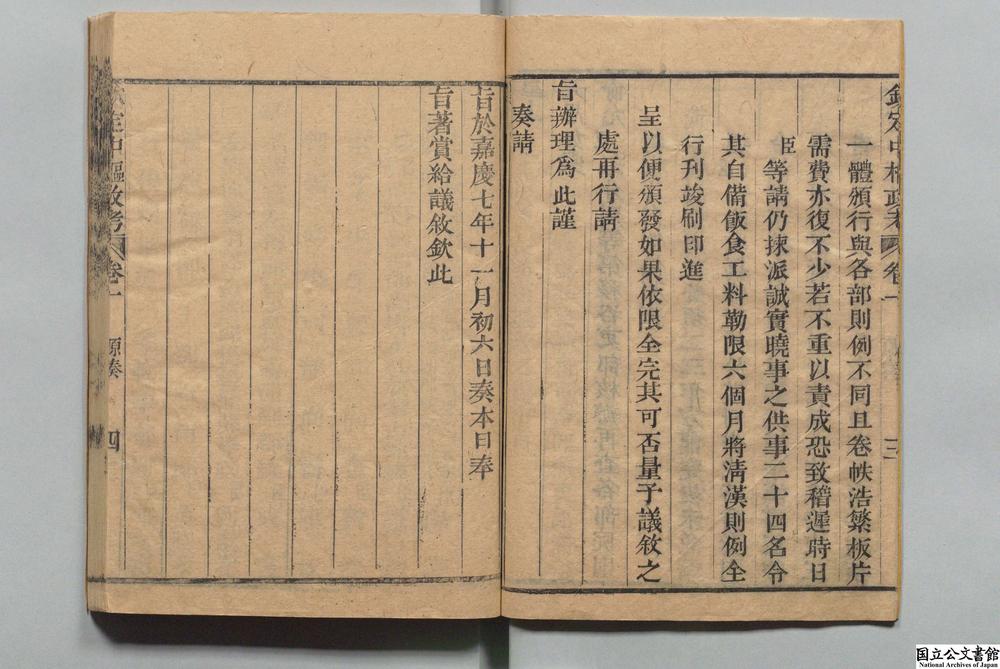 欽定中樞政考 卷一 三
一體頒行與各部則例不同且卷帙浩繁板片
需費亦復不少若不重以責成恐致稽遲時日
臣等請仍揀派誠實曉事之供事二十四名令
其自備飯食工料勒限六個月將淸漢則例全
行刊竣刷印進
呈以便頒發如果依限全完其可否量予議敘之
處再行請
旨辦理爲此謹
奏請
旨於嘉慶七年十一月初六日奏本日奉
旨著賞給議敘欽此
定中樞政考 卷一 原奏 四
国立公文書館
National Archives of Japan